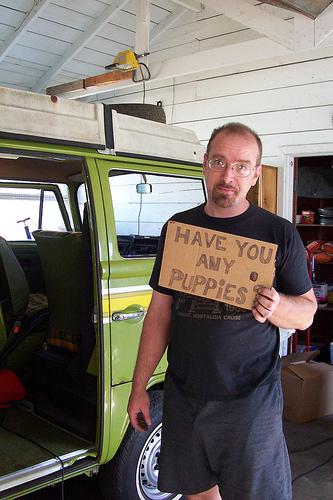 HAVE YOU
ANY
PUPPiES
NOSTALGIA CRUISE